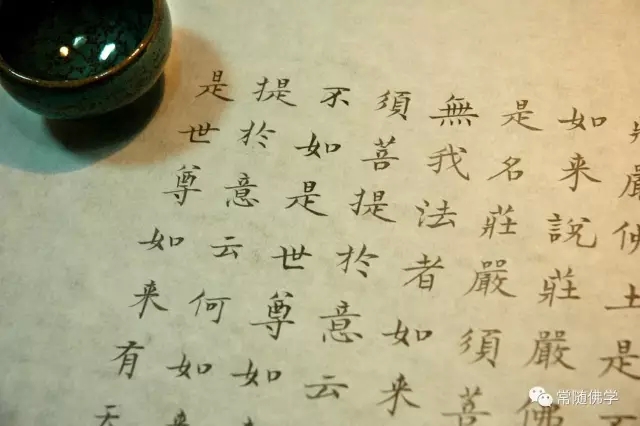 嚴佛土是
如来說莊嚴佛
是名莊嚴須菩
無我法者如来
須菩提於意云
不如是世尊如
提於意云何如来
是世尊如来有天
常随佛学